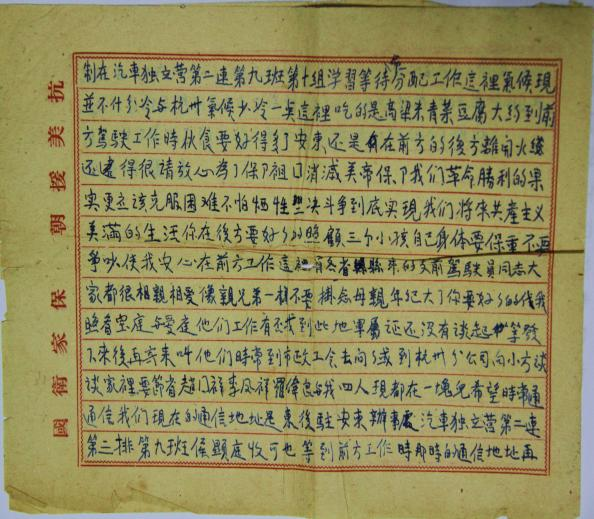 抗美援朝 保家衛國
制在汽車独立营第二連第九班第十組学習等待分配工作這裡氣候現
並不什分冷与杭卅氣候少冷一奌這裡吃的是高梁米青菜豆腐大約到前
方駕駛工作時伙食要好得多了安東还是在前方的後方離開火線
还遠得很請放心為了保祖囗消滅美帝保了我们革命勝利的果
实更应該克服困难不怕牺牲坚决斗争到底实現我们将来共產主义
美滿的生活你在後方要好好照顧三个小孩自己身体要保重不要
争吵使我安心在前方工作這裡有各省縣來的支前駕駛員同志大
家都很相親相爱像親兄弟一样不要掛念母親年纪大了你要好好的代我
与爱庭他们工作有否找到此地軍属证还没有談起等發
下來後再寄来叫他们時常到市政工会去问或到杭州分公司向小方談
談家裡要節省趙门祥李凤祥羅偉良与我四人現都在一塊兒希望時常通
通信我们現在的通信地址是東後駐安東辦事處汽車独立营第二連
第三排第九班侯顕庭收可也等到前方工作時那時的通信地址再